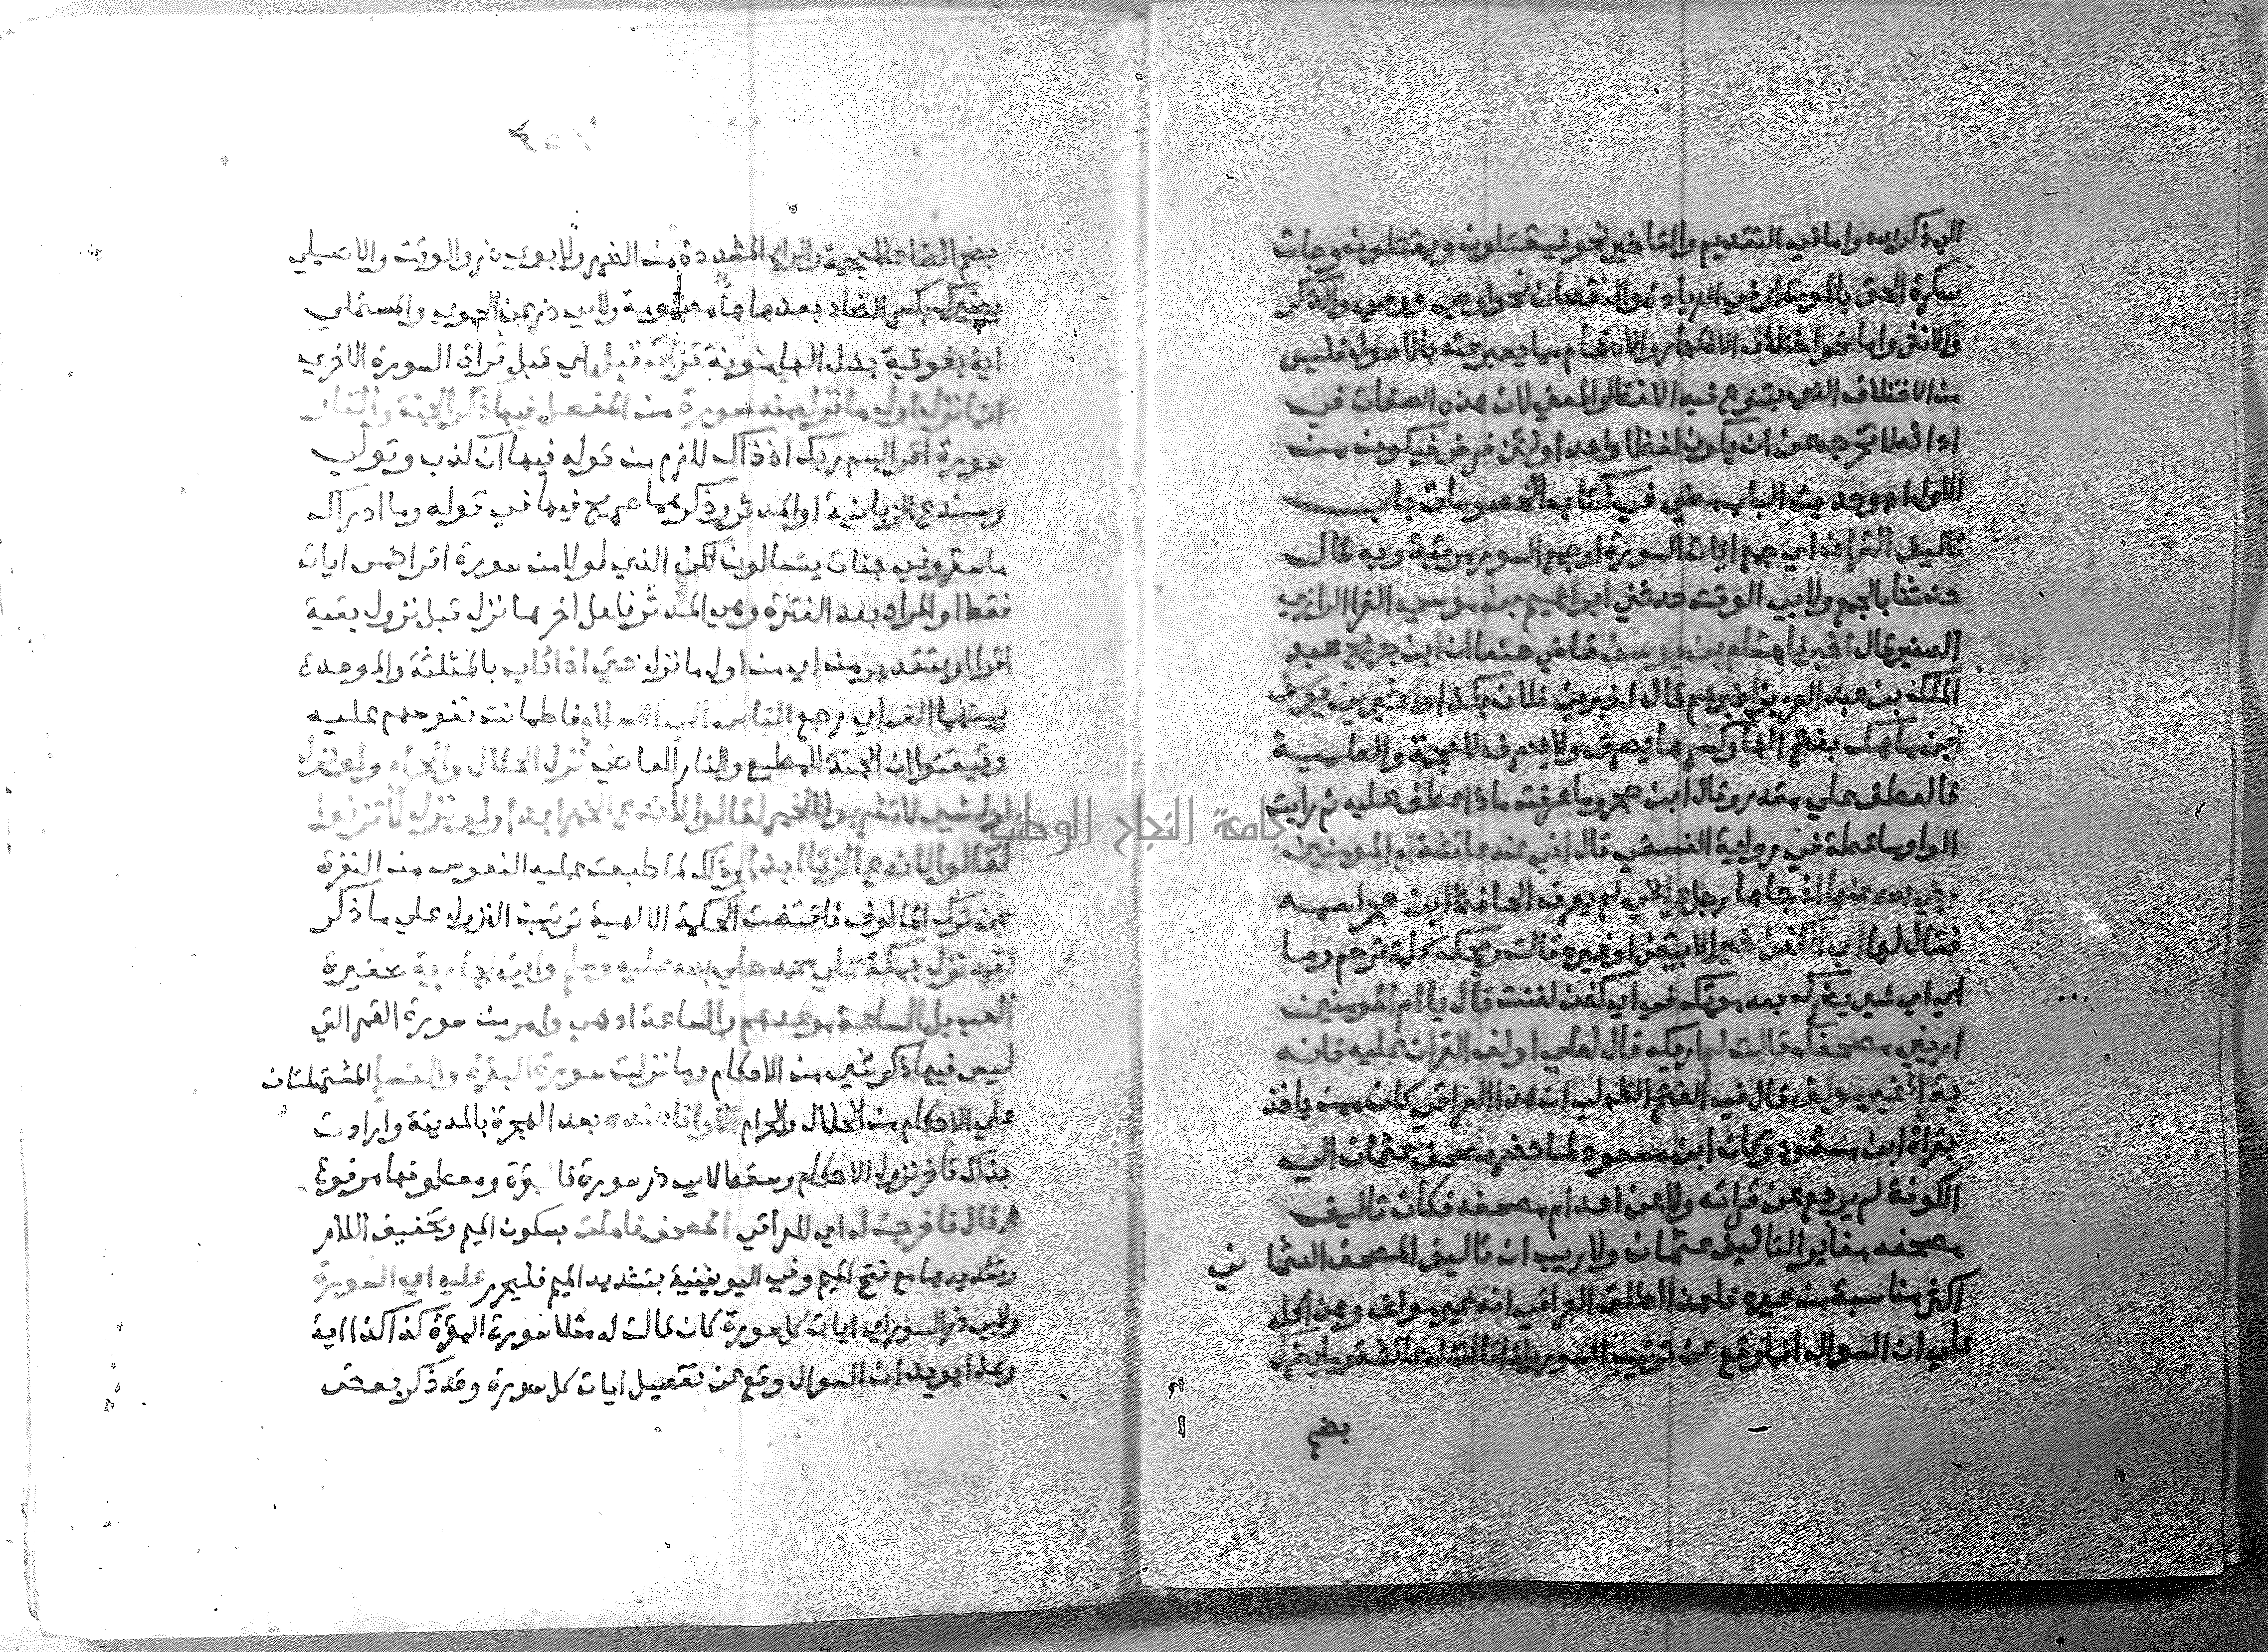 الي ذكر الله واما في التقديم والتاخير نحو فيقتلون ويقتلون وجات
سكرة الحق بالموت او في الزيادة والنقصان نحو اوصي ووصي والذكر
والانثي واما نحو اختلاف الاظهار والادغام مما يعبر عنه بالاصول فليس
من الاختلاف الذي يتنوع فيه اللفظ او المعني لان هذه الصفات في
ادائه لا تخرجه عن ان يكون لفظا واحدا ولئن فرض فيكون من
الاول اه وحديث الباب مضي في كتاب الخصومات باب
تاليف القران اي جمع ايات السورة او جمع السور مرتبة وبه قال
حدثنا بالجمع ولابي الوقت حدثني ابراهيم بن موسي الفرا الرازي
الصغير قال اخبرنا هشام بن يوسف قاضي صنعا ان ابن جريج عبد
الملك بن عبد العزيز اخبرهم قال اخبرني فلان بكذا واخبرني يوسف
ابن ماهك بفتح الها وكسرها يصرف ولا يصرف للعجمة والعلمية
قال عطف علي مقدر وقال ابن حجر وما عرفت ماذا عطف عليه ثم رايت
الواو ساقطة في رواية النسفي قال اني عند عائشة ام المومنين
رضي الله عنها اذ جاها رجل عراقي لم يعرف الحافظ ابن حجر اسمه
فقال لها اي الكفن خير الابيض او غيره قالت ويحك كلمة ترحم وما
اي اي شي يضرك بعد موتك في اي كفن كفنت قال يا ام المومنين
اريني مصحفك قالت لم اريكه قال لعلي اولف القران عليه فانه
يقرا غير مولف قال في الفتح الظهر لي ان هذا العراقي كان ممن ياخذ
بقراة ابن مسعود وكان ابن مسعود لما حضر مصحف عثمان الي
الكوفة لم يرجع عن قراته ولا عن اعدام مصحفه فكان تاليف
مصحفه مغاير التاليف عثمان ولا ريب ان تاليف المصحف العثماني
اكثر مناسبة من غيره فلهذا اطلق العراقي انه غير مولف وهذا كله
علي ان السوال انما وقع عن ترتيب السور ولذا قالت له عائشة وما يضرك
بضم
بضم الضاد المعجمة والراء المشددة من الضر ولابوي ذر والوقت والاصيلي
يضيرك بكسر الضاد بعدها ولابي ذر عن الحموي والمستملي
اية بفوقية بدل الها منونة قرات قبل اي قبل قراة السورة الاخري
انما نزل اول ما نزل منه سورة من المفصل فيها ذكر الجنة والنار
سورة اقرا باسم ربك اذ ذاك لازم من قوله فيها ان كذب وتولي
وسندع الزبانية او المدثر وذكرهما صريح فيها في قوله وما ادراك
ما سقر وفي جنات يتسالون لكن الذي نزل اولا من سورة اقرا خمس ايات
فقط او المراد بعد الفترة وهي المدثر فلعل اخرها نزل قبل نزول بقية
اقرا او بتقدير من اي من اول ما نزل حتي اذا ثاب بالمثلثة والموحدة
بينهما الف اي رجع الناس الي الاسلام فاطمانت نفوسهم عليه
وتيقنوا ان الجنة للمطيع والنار للعاصي نزل الحلال والحرام ولو نزل
اول شي لا تشربوا الخمر لقالوا لا ندع الخمر ابدا ولو نزل لا تزنوا
لقالوا لا ندع الزنا ابدا وذاك لما طبعت عليه النفوس من النفرة
عن ترك المالوف فاقتضت الحكمة الالهية ترتيب النزول علي ما ذكر
لقد نزل بمكة علي محمد صلي الله عليه وسلم واني لجارية صغيرة
العب بل الساعة موعدهم والساعة ادهي وامر من سورة القمر التي
ليس فيها ذكر شي من الاحكام وما نزلت سورة البقرة والنسا المشتملتان
علي الاحكام من الحلال والحرام الا وانا عنده بعد الهجرة بالمدينة وارادت
بذلك تاخر نزول الاحكام وسقط لابي ذر سورة فالبقرة ومعطوفها مرفوع
قال فاخرجت له اي للعراقي المصحف فاملت بسكون الميم وتخفيف اللام
وتشديدها مع فتح الميم وفي اليونينية بتشديد الميم فليحرر عليه اي السورة
ولابي ذر السور اي ايات كل سورة كان قالت له مثلا سورة البقرة كذا كذا اية
وهذا يويد ان السوال وقع عن تفصيل ايات كل سورة وقد ذكر بعض
جامعة النجاح الوطنية